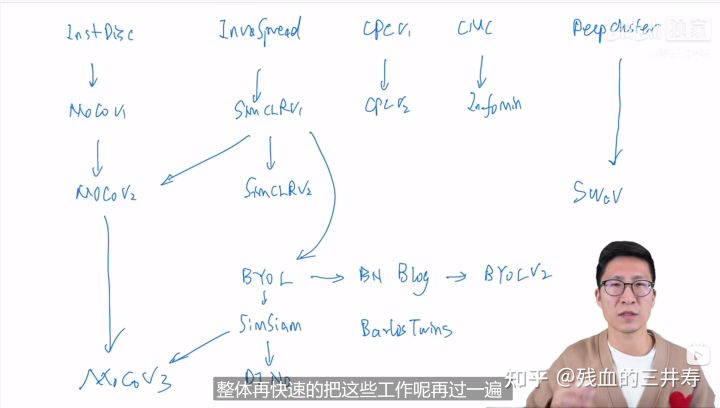 InstDisc InvaSpread CPCV1 CMC DeepCluster
MoCoV1 SimCLRV1 CPCV2 Infomin
MOCOV2 SimCLRV2 SWaV
BYOL BN Blog BYOLV2
SimSiam BarlosTwins
MoCoV3 DINO
整体再快速的把这些工作呢再过一遍
知乎 @残血的三井寿